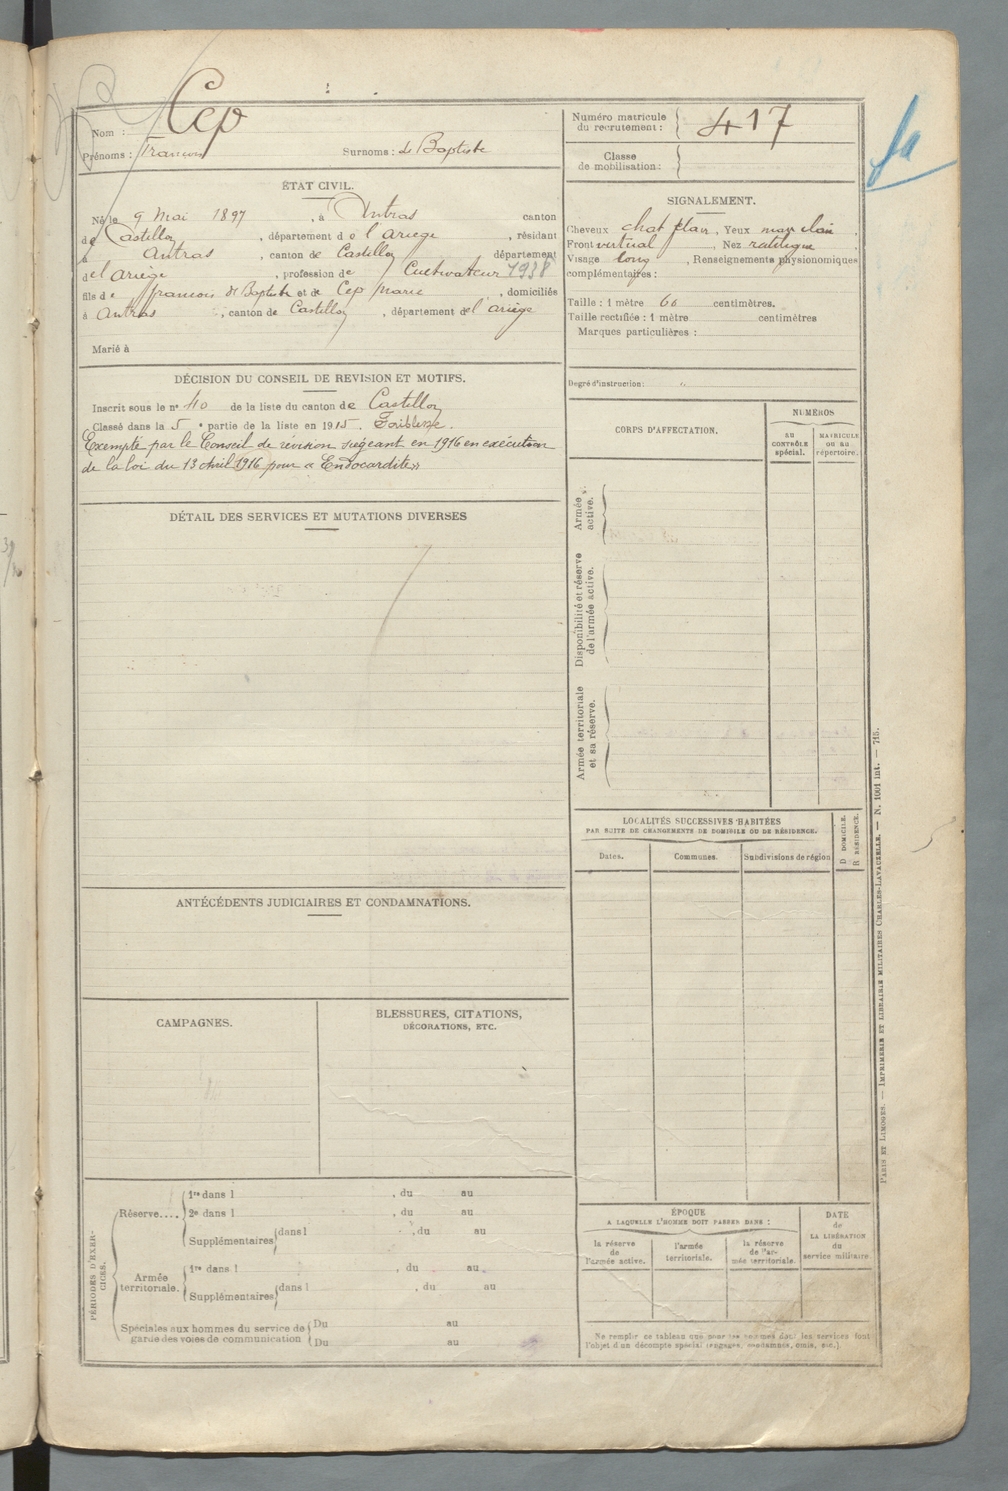 Nom : Cep
Prénoms : François Surnoms : de Baptiste
ÉTAT CIVIL.
Né le 9 Mai 1897, à Antras canton
de Castillon, département de l'Ariège, résidant
à Antras, canton de Castillon département
de l'Ariège, profession de Cultivateur 1938
fils de François de Baptiste et de Cep Marie, domiciliés
à Antras, canton de Castillon, département de l'Ariège
Marié à
DÉCISION DU CONSEIL DE REVISION ET MOTIFS.
Inscrit sous le n° 40 de la liste du canton de Castillon
Classé dans la 5e partie de la liste en 1915. Faiblesse.
Exempté par le Conseil de révision siégeant en 1916 en exécution
de la loi du 13 avril 1916 pour « Endocardite »
DÉTAIL DES SERVICES ET MUTATIONS DIVERSES
ANTÉCÉDENTS JUDICIAIRES ET CONDAMNATIONS.
CAMPAGNES.
BLESSURES, CITATIONS,
DÉCORATIONS, ETC.
PÉRIODES D'EXER-
CICES.
Réserve....
1re dans l , du au
2e dans l , du au
Supplémentaires dans l , du au
Armée
territoriale.
1re dans l , du au
Supplémentaires dans l , du au
Spéciales aux hommes du service de
garde des voies de communication
Du au
Du au
Numéro matricule
du recrutement : 417
Classe
de mobilisation :
SIGNALEMENT.
Cheveux chat , Yeux
Front vertical , Nez rectiligne
Visage long , Renseignements physionomiques
complémentaires :
Taille : 1 mètre 60 centimètres.
Taille rectifiée : 1 mètre centimètres
Marques particulières :
Degré d'instruction :
CORPS D'AFFECTATION.
NUMÉROS
AU
CONTRÔLE
spécial.
MATRICULE
ou au
répertoire.
Armée
active.
Disponibilité et réserve
de l'armée active.
Armée territoriale
et sa réserve.
LOCALITÉS SUCCESSIVES HABITÉES
PAR SUITE DE CHANGEMENTS DE DOMICILE OU DE RÉSIDENCE.
D DOMICILE.
R RÉSIDENCE.
Dates. Communes. Subdivisions de région.
ÉPOQUE
A LAQUELLE L'HOMME DOIT PASSER DANS :
la réserve
de
l'armée active.
l'armée
territoriale.
la réserve
de l'ar-
mée territoriale.
DATE
de
LA LIBÉRATION
du
service militaire.
Ne remplir ce tableau que pour les hommes dont les services font
l'objet d'un décompte spécial (engagés, condamnés, omis, etc.).
PARIS ET LIMOGES. — IMPRIMERIE ET LIBRAIRIE MILITAIRES CHARLES-LAVAUZELLE. — N. 1001 int. — 715.